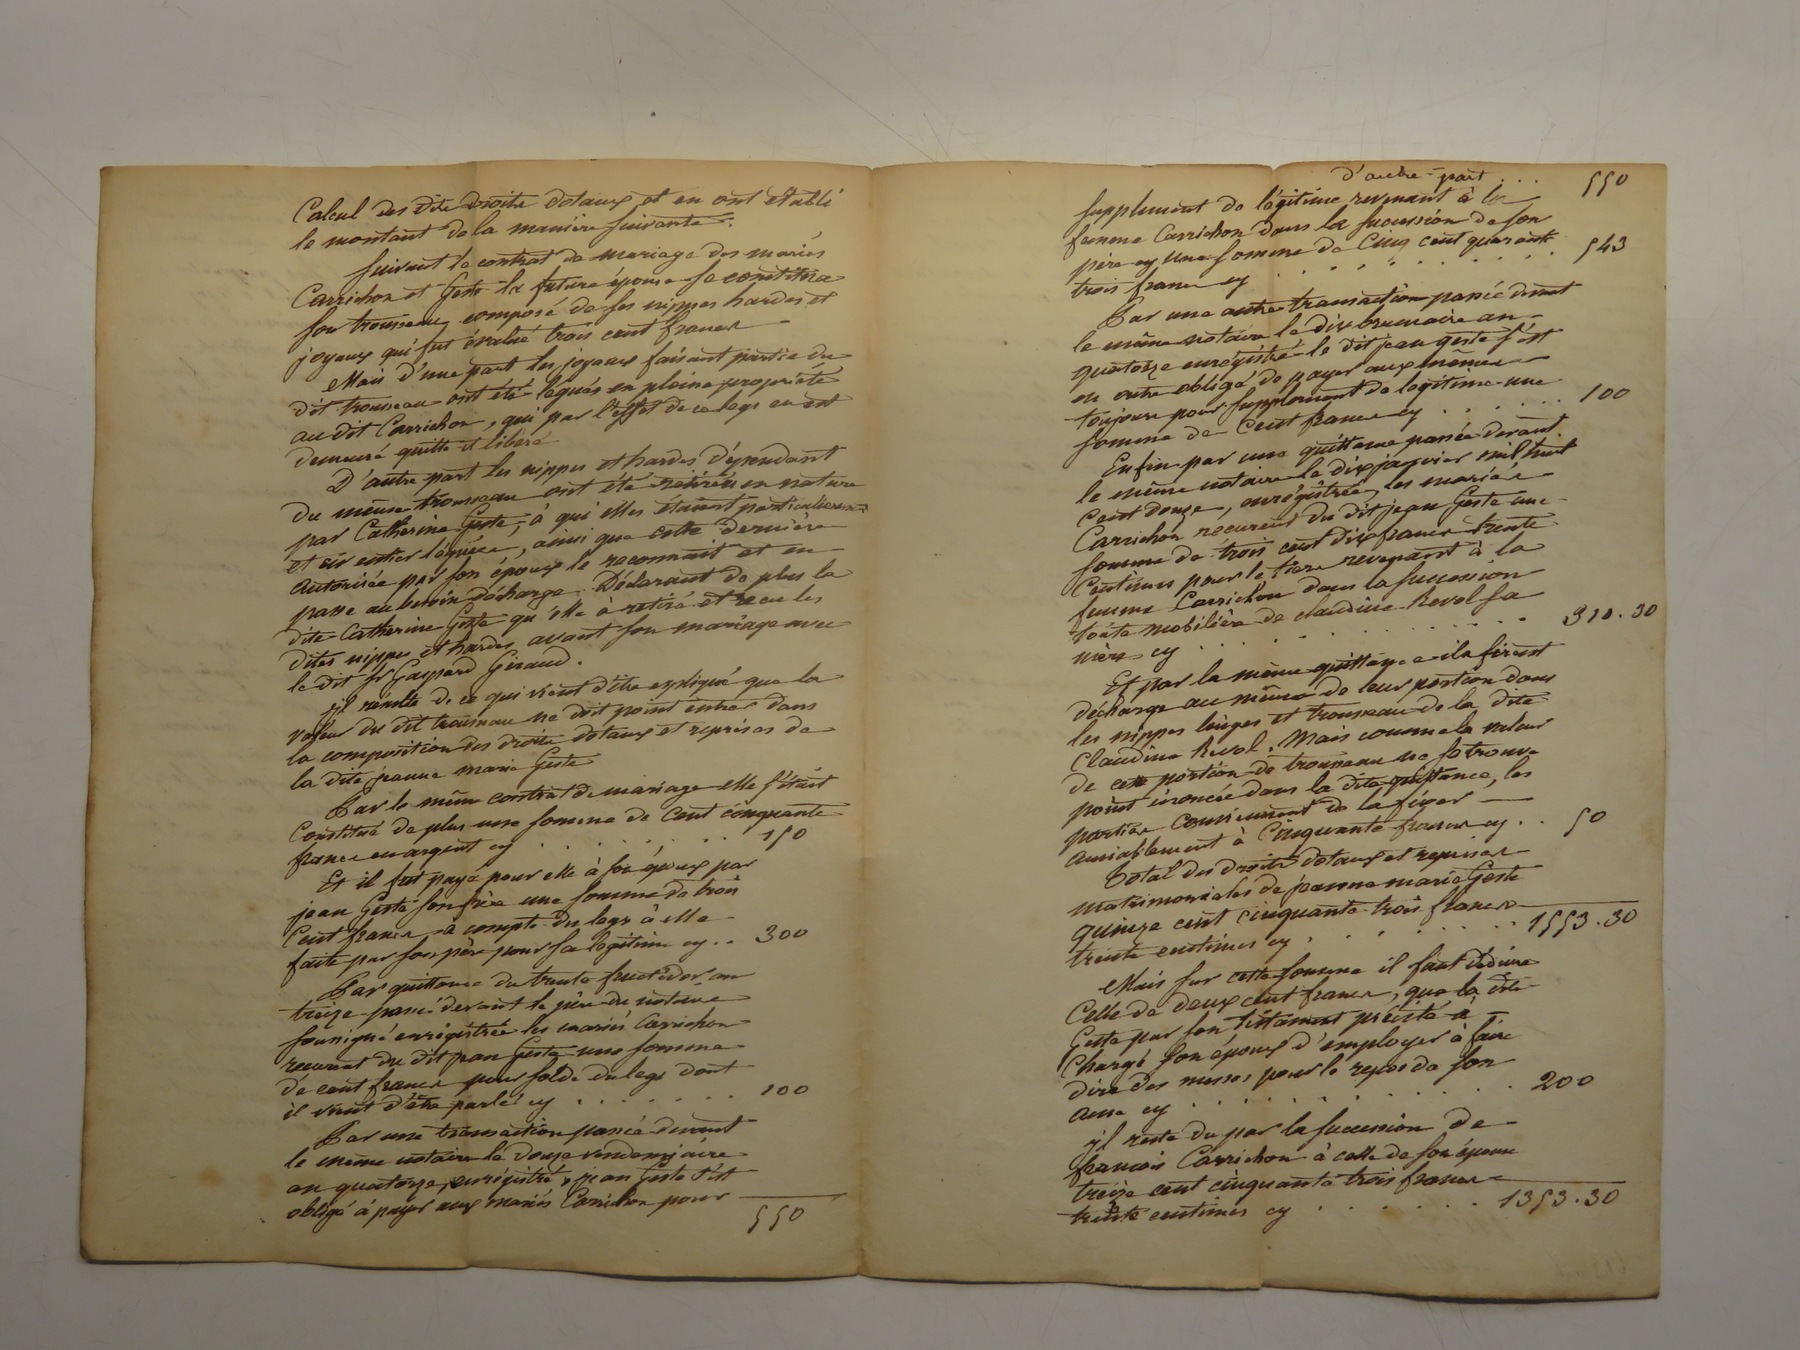 Calcul des dits Droits dotaux et en ont établi
le montant de la manière suivante:
Suivant le contrat de mariage des mariés
Carrichon et Geste la future épouse se constitua
son trousseau composé de ses nippes hardes et
joyaux qui fut évalué trois cent francs
Mais d'une part les joyaux faisant partie du
dit trousseau ont été légués en pleine propriété
au dit Carrichon, qui par l'effet de ce legs en est
demeuré quitte et libéré
D'autre part les nippes et hardes dépendant
du même trousseau ont été retirées en nature
par Catherine Geste, à qui elles étaient particulièrem.
et en entier léguées, ainsi que cette dernière
autorisée par son époux le reconnait et en
passe au besoin décharge. Déclarant de plus la
dite Catherine Geste qu'elle a retiré et reçu les
dites nippes et hardes avant son mariage avec
le dit Sr Gaspard Giraud.
Il résulte de ce qui vient d'être expliqué que la
valeur du dit trousseau ne doit point entrer dans
la composition des droits dotaux et reprises de
la dite jeanne marie Geste
Par le même contrat de mariage elle s'était
Constitué de plus une somme de Cent cinquante
francs en argent cy . . . . . . . 150
Et il fut payé pour elle à son époux par
jean Geste son frère une somme de trois
Cent francs à compte du legs à elle
faite par son père pour sa légitime cy . . 300
Par quittance du trente fructidor an
treize passé devant le père du notaire
soussigné enrégistrée les mariés Carrichon
reçurent du dit jean Geste une somme
de cent francs pour solde du legs dont
il vient d'être parlé cy . . . . . . . 100
Par une transaction passée devant
le même notaire le douze vendemiaire
an quatorze, enrégistré, jean Geste s'est
obligé à payer aux mariés Carrichon pour
550
D'autre part . . . 550
supplément de légitime revenant à la
femme Carrichon dans la succession de son
père cy une somme de Cinq cent quarante
trois francs cy . . . . . . . . . 543
Par une autre transaction passée devant
le même notaire le dix brumaire an
quatorze enregistré le dit jean geste s'est
en outre obligé de payer aux mêmes
toujours pour supplément de légitime une
somme de Cent francs cy . . . . . . 100
Enfin par une quittance passée devant
le même notaire le dix janvier mil huit
Cent douze, enrégistrée, les mariés
Carrichon reçurent du dit jean Geste une
somme de trois cent dix francs trente
Centimes pour le tiers revenant à la
femme Carrichon dans la succession
toute mobilière de claudine Revol sa
mère cy . . . . . . . . . . . 310.30
Et par la même quittance ils firent
décharge au même de leur portion dans
les nippes linges et trousseau de la dite
Claudine Revol. Mais comme la valeur
de cette portion de trousseau ne se trouve
point énoncée dans la dite quittance, les
parties conviennent de la fixer
amiablement à Cinquante francs cy . . 50
Total des Droits dotaux et reprises
matrimoniales de jeanne marie Geste
quinze cent cinquante trois francs
trente centimes cy . . . . . . . 1553.30
Mais sur cette somme il faut déduire
Celle de deux cent francs, que la dite
Geste par son testament précité a
Chargé son époux d'employer à faire
dire des messes pour le repos de son
ame cy . . . . . . . . . . 200
il reste du par la succession de
francois Carrichon à celle de son épouse
treize cent cinquante trois francs
trente centimes cy . . . . . . . 1353.30